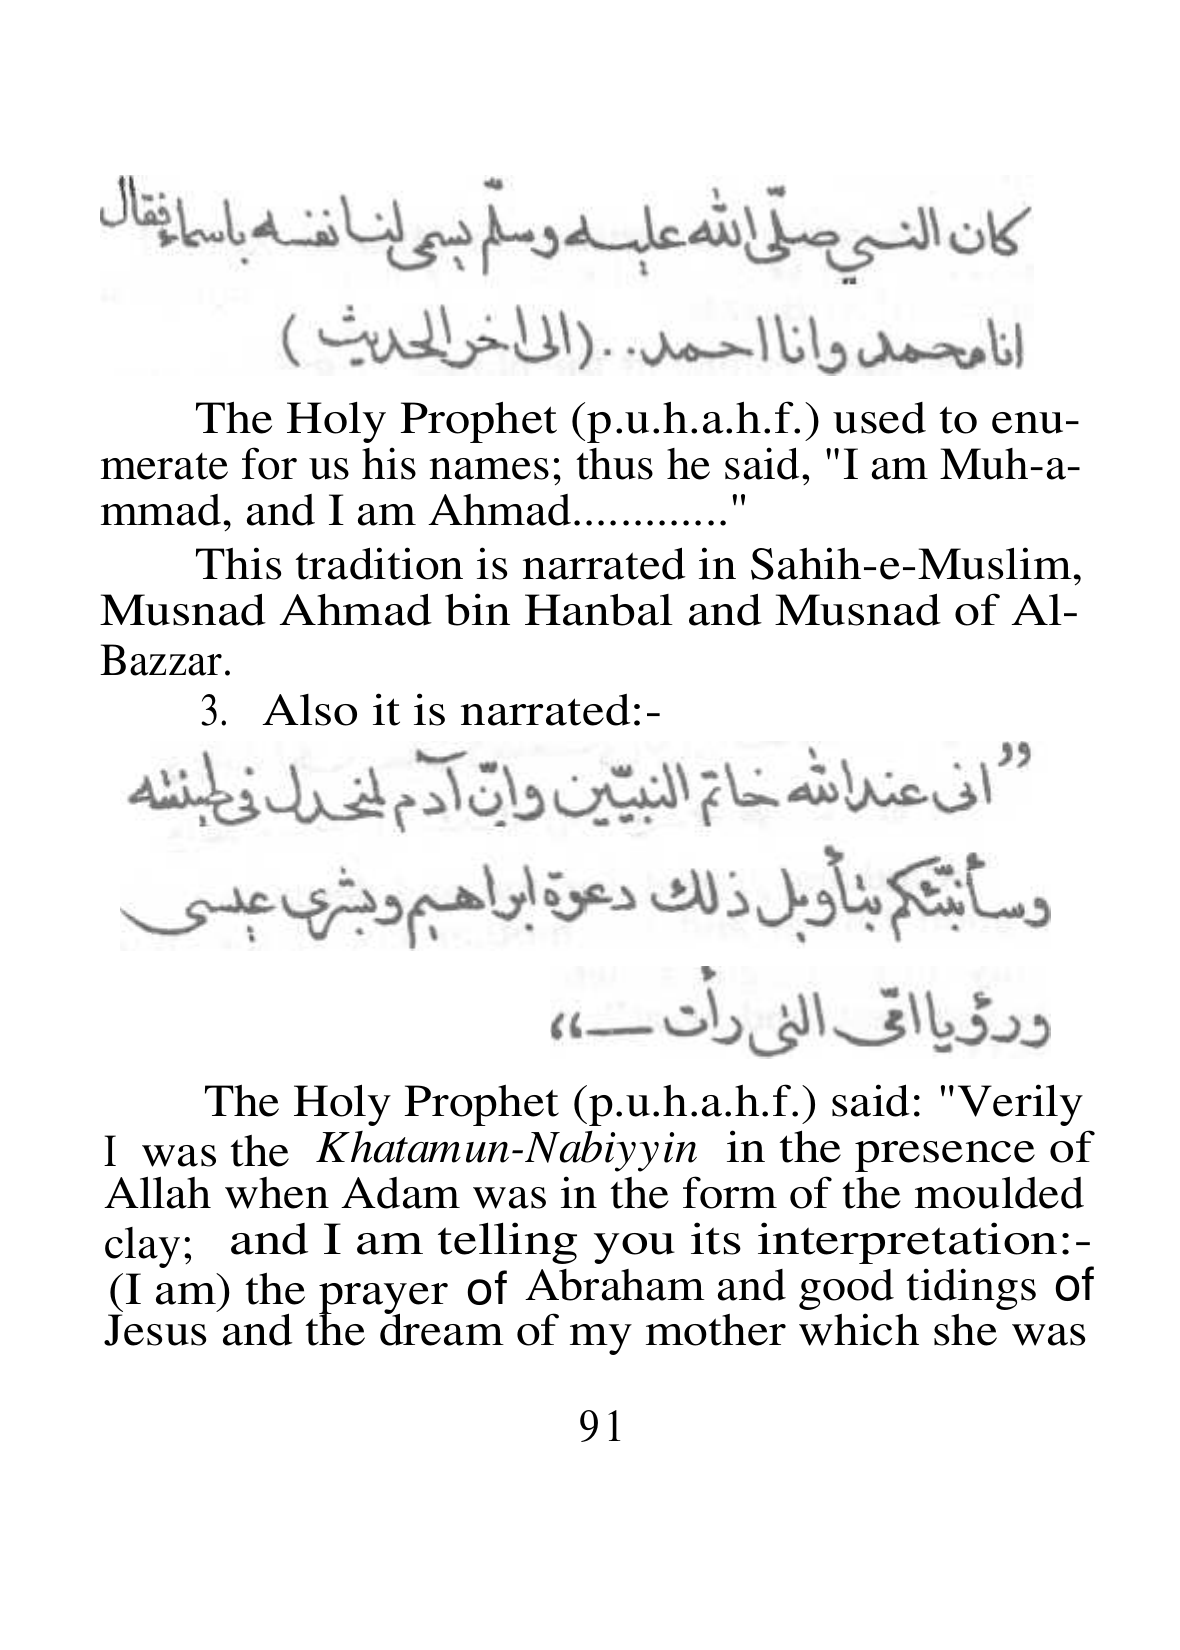 كان النبي صلّى الله عليه وسلّم يسمى لنا نفسه باسماء فقال
انا محمد وانا احمد..(الى اخر الحديث)
The Holy Prophet (p.u.h.a.h.f.) used to enu-
merate for us his names; thus he said, "I am Muh-a-
mmad, and I am Ahmad............."
This tradition is narrated in Sahih-e-Muslim,
Musnad Ahmad bin Hanbal and Musnad of Al-
Bazzar.
3. Also it is narrated:-
”انى عند الله خاتم النبيّين وإنّ آدم لمنجدل فى طينته
وسأنبّئكم بتأويل ذلك دعوة ابراهيم وبشرى عيسى
ورؤيا امّى التى رأت —“
The Holy Prophet (p.u.h.a.h.f.) said: "Verily
I was the Khatamun-Nabiyyin in the presence of
Allah when Adam was in the form of the moulded
clay; and I am telling you its interpretation:-
(I am) the prayer of Abraham and good tidings of
Jesus and the dream of my mother which she was
91